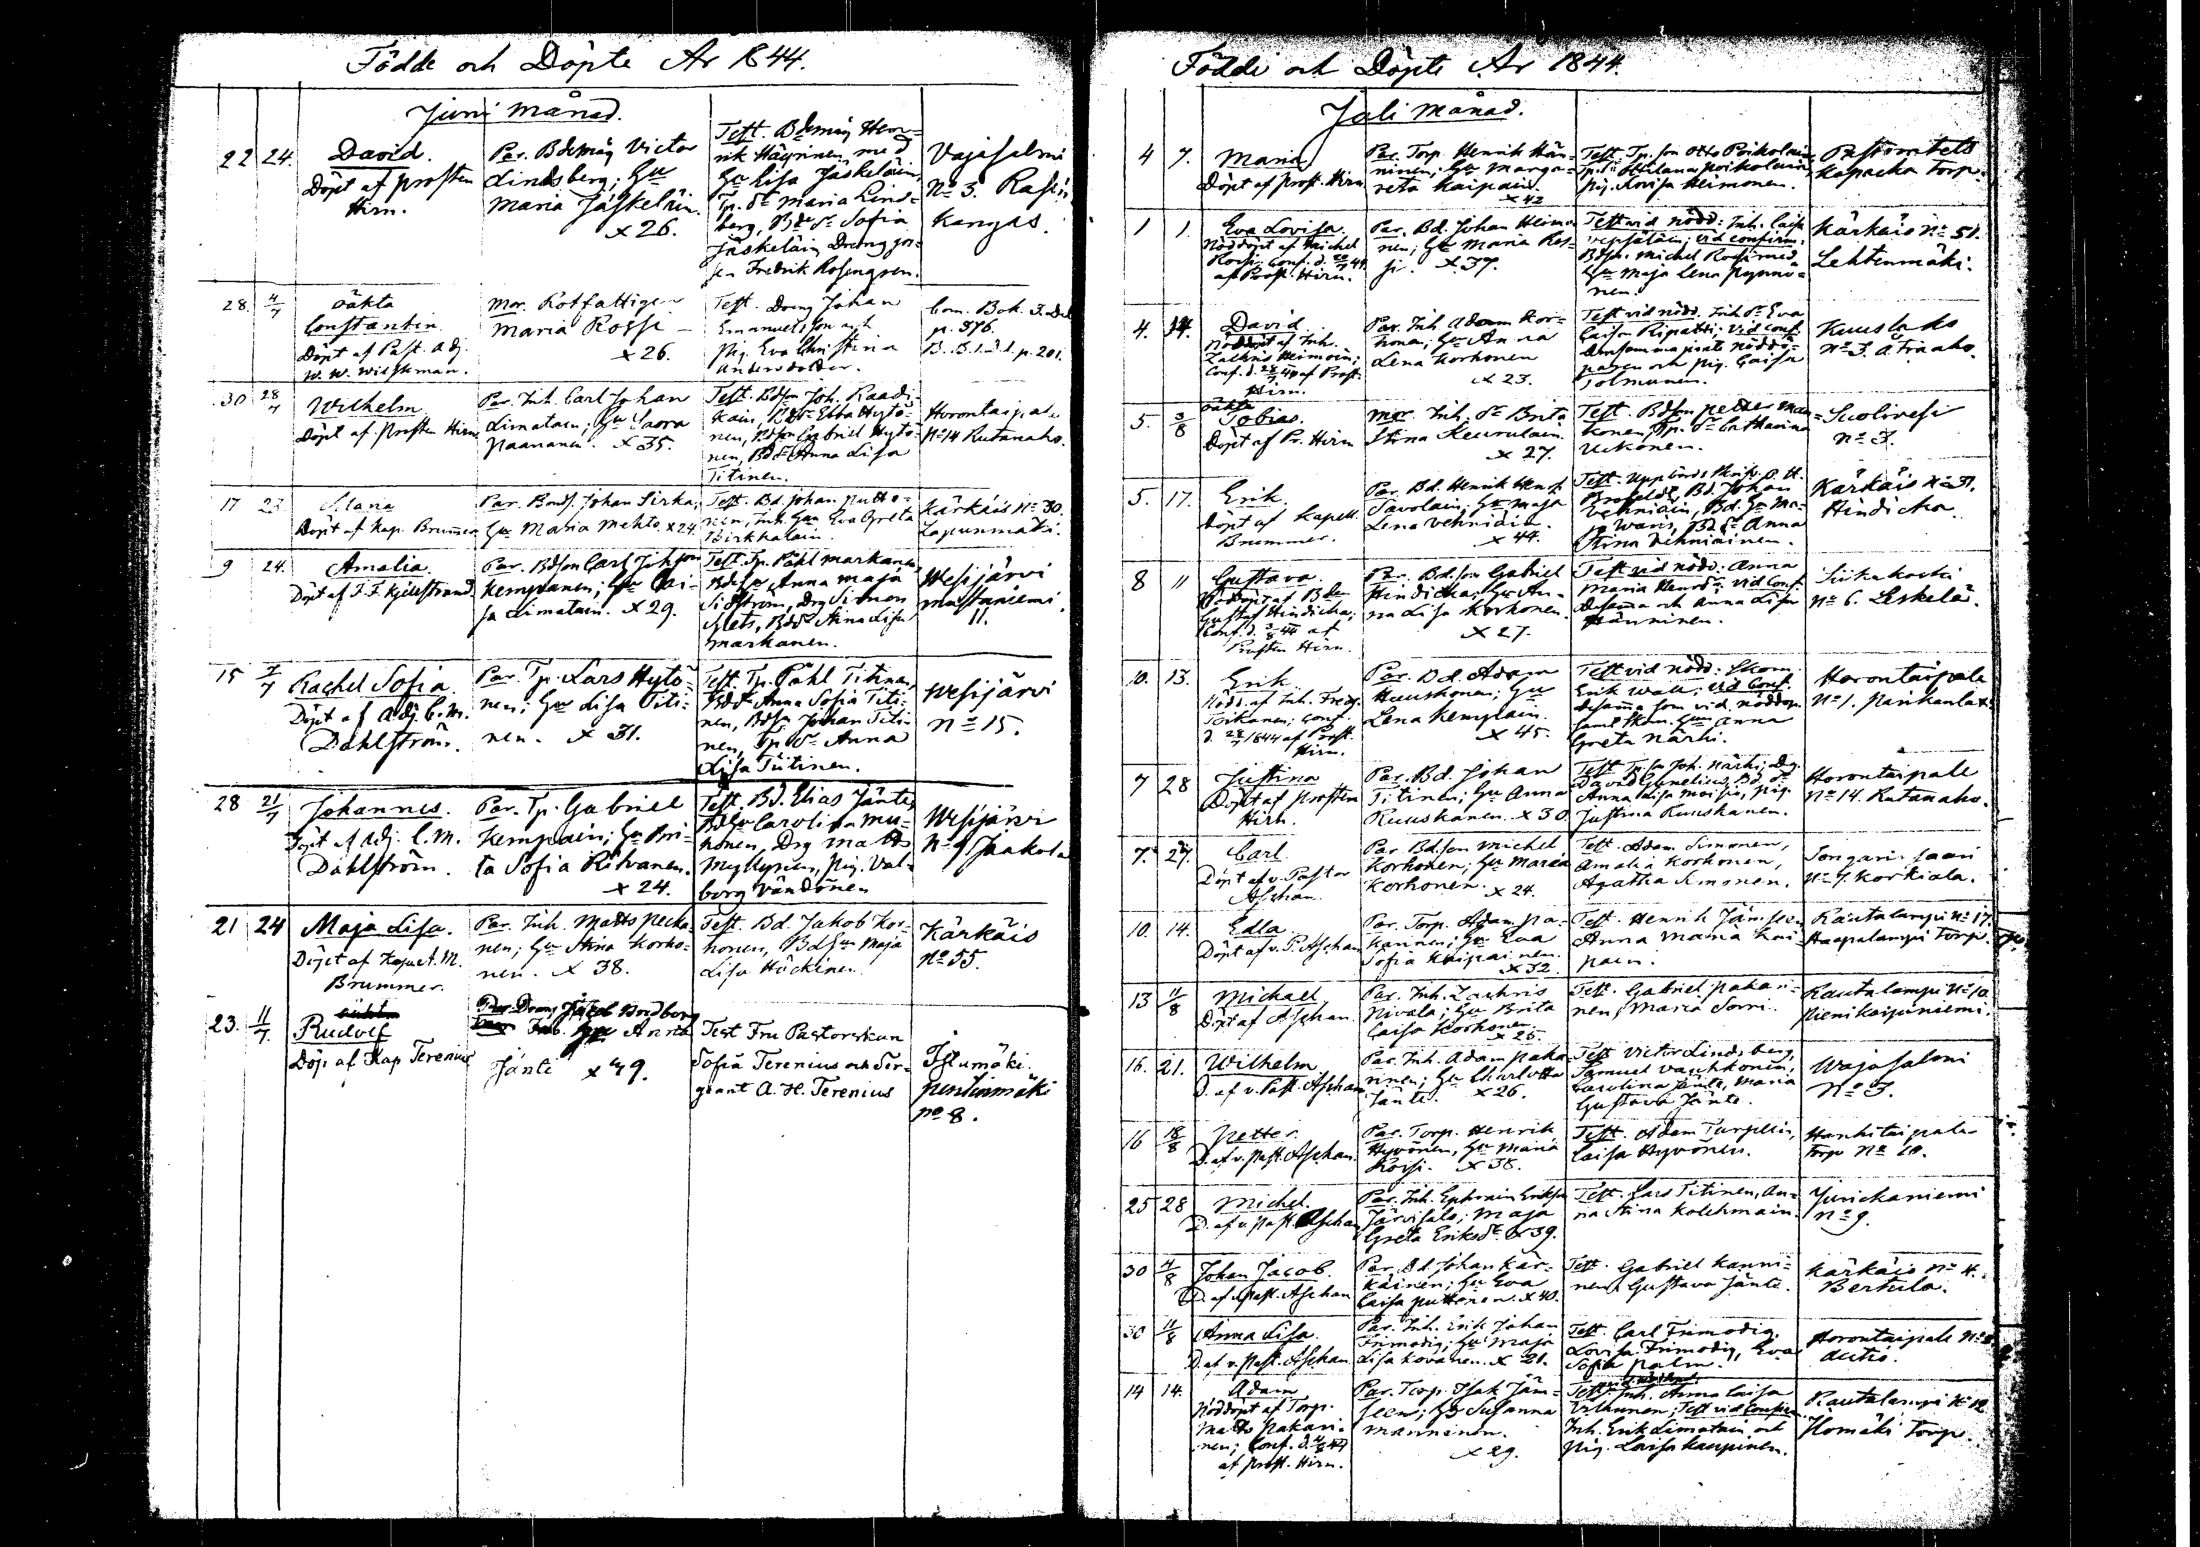 Födde och Döpte År 1844.
Juni Månad.
22 24. David. Döpt af Prosten Hirn.
Par. Bdemåg Victor Lindsberg; Hu Maria Jäskeläin. x 26.
Test. Bdemåg Hen-
rik Häyrinen med
Hu Lisa Jäskeläin,
Tp. dr Maria Lind-
berg, Bde dr Sofia
Jäskeläin, Dreng
Fredrik Rosengren.
Vajasalmi
No 3.
kangas.
28. 4/7 oäkta
Constantin.
Döpt af Past. Adj.
W. W. Wilskman.
Mor. Rotfattigen
Maria Rossi
x 26.
Test. Dreng Johan
Emanuelsson och
Pig. Eva Christina
Andersdotter.
Com. Bok. I. Del
p. 376.
B. B. 1. D. p. 201.
30 28/7 Wilhelm
Döpt af Prosten Hirn
Par. Inh. Carl Johan
Limatain; Hu Saara
Paananen. x 35.
Test. Bdson Joh. Raadi-
kain, Ebba Hytö-
nen, Bdson Gabriel Hytö-
nen, Bd dr Anna Lisa
Titinen.
Horontaipale
No 14 Rutanaho.
17 23
Döpt af Kap. Brummer
Par. Johan Sirka;
Hu Maria Mehto x 24
Test. Bd. Johan Putto-
nen, Inh. Hu Eva Greta
Pirkkalain.
Kärkäis No 30.
Lapunmäki.
9 24. Amalia.
Döpt af F. F. Kjellstrand
Par. Bdson Carl Johan
Kemppanen; Hu Cai-
sa Limatain. x 29.
Test. Tp. Påhl Markanen
Bd Hu Anna Maja
Sidström, Drg Simon
Mets, Bd dr Anna Lisa
Markanen.
Wesijärvi
Mustaniemi
11.
15 7/7 Rachel Sofia.
Döpt af Adj. C. M.
Dahlström.
Par. Tp. Lars Hytö-
nen; Hu Lisa Titi-
nen. x 31.
Test. Tp. Påhl Titinen,
Bd dr Anna Sofia Titi-
nen, Bdson Johan Titi-
nen, Tp. dr Anna
Lisa Titinen.
Wesijärvi
No 15.
28 21/7 Johannes.
Döpt af Adj. C. M.
Dahlström.
Par. Tp. Gabriel
Kempain; Hu Bri-
ta Sofia Ritvanen.
x 24.
Test. Bd. Elias Jänte,
Bd Hu Carolina Mu-
nonen, Drg Matts
Myllyinen, Pig. Val-
borg Vändönen
Wesijärvi
No 9 Jaakola
21 24 Maja Lisa.
Döpt af Kapu A. M.
Brummer.
Par. Inh. Matts Pecka-
nen; Hu Stina Korho-
nen. x 38.
Test. Bd. Jakob Kor-
honen, Bd Hu Maja
Lisa Häckinen.
Kärkäis
No 55.
23. 11/7.
Rudolf
Döp. af Kap Terenius
Par. Dreng Jakob Nordberg
Hu Anna
Jänte x 49.
Test Fru Pastorskan
Sofia Terenius och Ser-
geant A. H. Terenius
Istumäki
Penttinmäki
No 8.
Födde och Döpte År 1844.
Juli Månad.
4 7. Maria.
Döpt af Prost. Hirn
Par. Torp. Henrik Hän-
ninen; Hu Marga-
reta Kaipain.
x 42
Test. Tp. son Otto Poikolain,
Poikolain,
Pig. Lovisa Heimonen.
Pastoratets
Kapacka Torp.
1 1. Eva Lovisa.
Nöddöpt af Michel
Rossi; Conf. d. 20/7 44
af Prost. Hirn.
Par. Bd. Johan Heimo-
nen; Hu Maria Ros-
si. x 37.
Test vid nödd: Inh. Caisa
Vepsäläin; vid confirm.
Bdson. Michel Rossi med
Hu Maja Lena Pynnö-
nen.
Kärkäis No 51.
Lehtenmäki.
4. 14. David
Nöddöpt af Inh.
Zachris Heimoin;
Conf. d. 28/7 44 af Prost.
Hirn.
Par. Inh. Adam Kor-
honen; Hu Anna
Lena Korhonen
x 23.
Test vid nödd. Inh dr Eva
Caisa Ripatti; vid conf.
Densamma nöddö-
paren och Pig. Caisa
Tolmunen.
Kuuslaks
No 3.
5. 3/8 oäkta
Tobias.
Döpt af Pr. Hirn
Mor. Inh. dr Brita
Stina Keurulain.
x 27.
Test. Bdson Petter Man-
konen, Tp. dr Catharina
Ukonen.
Suolivesi
No 3.
5. 17. Erik.
Döpt af Kapell.
Brummer.
Par. Bd. Henrik
Savolain; Hu Maja
Lena Vehniäin.
x 44.
Test. A. H.
Brofeldt, Bd. Johan
Vehniäin, Bd. Hu Ma-
ja Waris, Bd dr Anna
Stina Vehniäinen.
Kärkäis No 31.
Hindicka.
8 11 Gustava.
Nöddöpt af Bde
Gustaf Hindicka;
Conf. d. 3/8 44 af
Prosten Hirn.
Par. Bd. son Gabriel
Hindicka; Hu An-
na Lisa Korhonen.
x 27.
Test vid nödd: Anna
Maria Henrdr; vid Conf.
Desamma och Anna Lisa
Hänninen.
Siikakoski
No 6. Leskelä.
10. 13. Erik
Nödd. af Inh. Fredr.
Toikanen; Conf.
d. 28/7 1844 af Prost.
Hirn.
Par. Bd. Adam
Huuskonen; Hu
Lena Kemplain.
x 45.
Test vid nödd: Skom.
Erik Wall; vid Conf.
desamma som vid nöddop.
samt Skom. Hu Anna
Greta Närhi.
Horontaipale
No 1.
7 28 Justina
Döpt af Prosten
Hirn.
Par. Bd. Johan
Titinen; Hu Anna
Ruuskanen. x 30
Test Tp. son Joh. Närhi; Drg.
David Gunelius, Bd. dr
Anna Lisa Moisio, Pig.
Justina Ruuskanen.
Horontaipale
No 14. Rutanaho.
7. 27. Carl
Döpt af v. Pastor
Aschan.
Par. Bd. son Michel
Korhonen; Hu Maria
Korhonen. x 24.
Test. Adam Simonen,
Amalia Korhonen,
Agatha Simonen.
Tongarinsaari
No 7. Korkiala.
10. 14. Edla
Döpt af v. P. Aschan
Par. Torp. Adam Pa-
kanen; Hu Eva
Sofia Kaipainen.
x 32.
Test. Henrik Jämseen
Anna Maria Kai-
pain.
Rautalampi No 17.
Haapalampi Torp.
13 11/8 Michael
Döpt af Aschan.
Par. Inh. Zachris
Nivala; Hu Brita
Caisa Korhonen.
x 25.
Test. Gabriel Pakari-
nen, Maria Sorri.
Rautalampi No 10.
Pienikaipuniemi.
16. 21. Wilhelm
D. af v. Past. Aschan
Par. Inh. Adam Paka-
rinen; Hu Charlotta
Jänte. x 26.
Test. Victor Lindsberg,
Samuel Vaschkonen,
Carolina Jänte, Maria
Gustava Jänte.
Wajasalmi
No 3.
16 18/8 Petter.
D. af v. Past. Aschan.
Par. Torp. Henrik
Hyvönen, Hu Maria
Rossi. x 38.
Test. Adam Turpein,
Caisa Hyvönen.
Hankitaipale
Torp No 10.
25 28 Michel.
D. af v. Past. Aschan
Par. Inh. Ephraim Eriksson
Järvisalo; Maja
Greta Eriksdr. x 39.
Test. Lars Titinen, An-
na Stina Kolehmain.
Jurickaniemi
No 9.
30 4/8 Johan Jacob.
D. af v. Past. Aschan
Par. Bd. Johan Kär-
käinen; Hu Eva
Caisa Puttonen. x 40.
Test. Gabriel Kanni-
nen, Gustava Jänte.
Kärkäis No 4.
Bertula.
30 11/8 Anna Lisa.
D. af v. Past. Aschan
Par. Inh. Erik Johan
Frimodig; Hu Maja
Lisa Kovanen. x 21.
Test. Carl Frimodig.
Lovisa Frimodig, Eva
Sofia Palm.
Horontaipale No
14 14. Adam
Nöddöpt af Torp.
Matts Pakari-
nen; Conf. d. 4/8 44
af Prost. Hirn.
Par. Torp. Isak Jäm-
seen; Hu Susanna
Manninen.
x 29.
Test. Inh. Anna Caisa
Urhunen; Test vid Conf.
Inh. Erik Limatain och
Pig. Lovisa Kaupinen.
Rautalampi No 12
Homäki Torp.